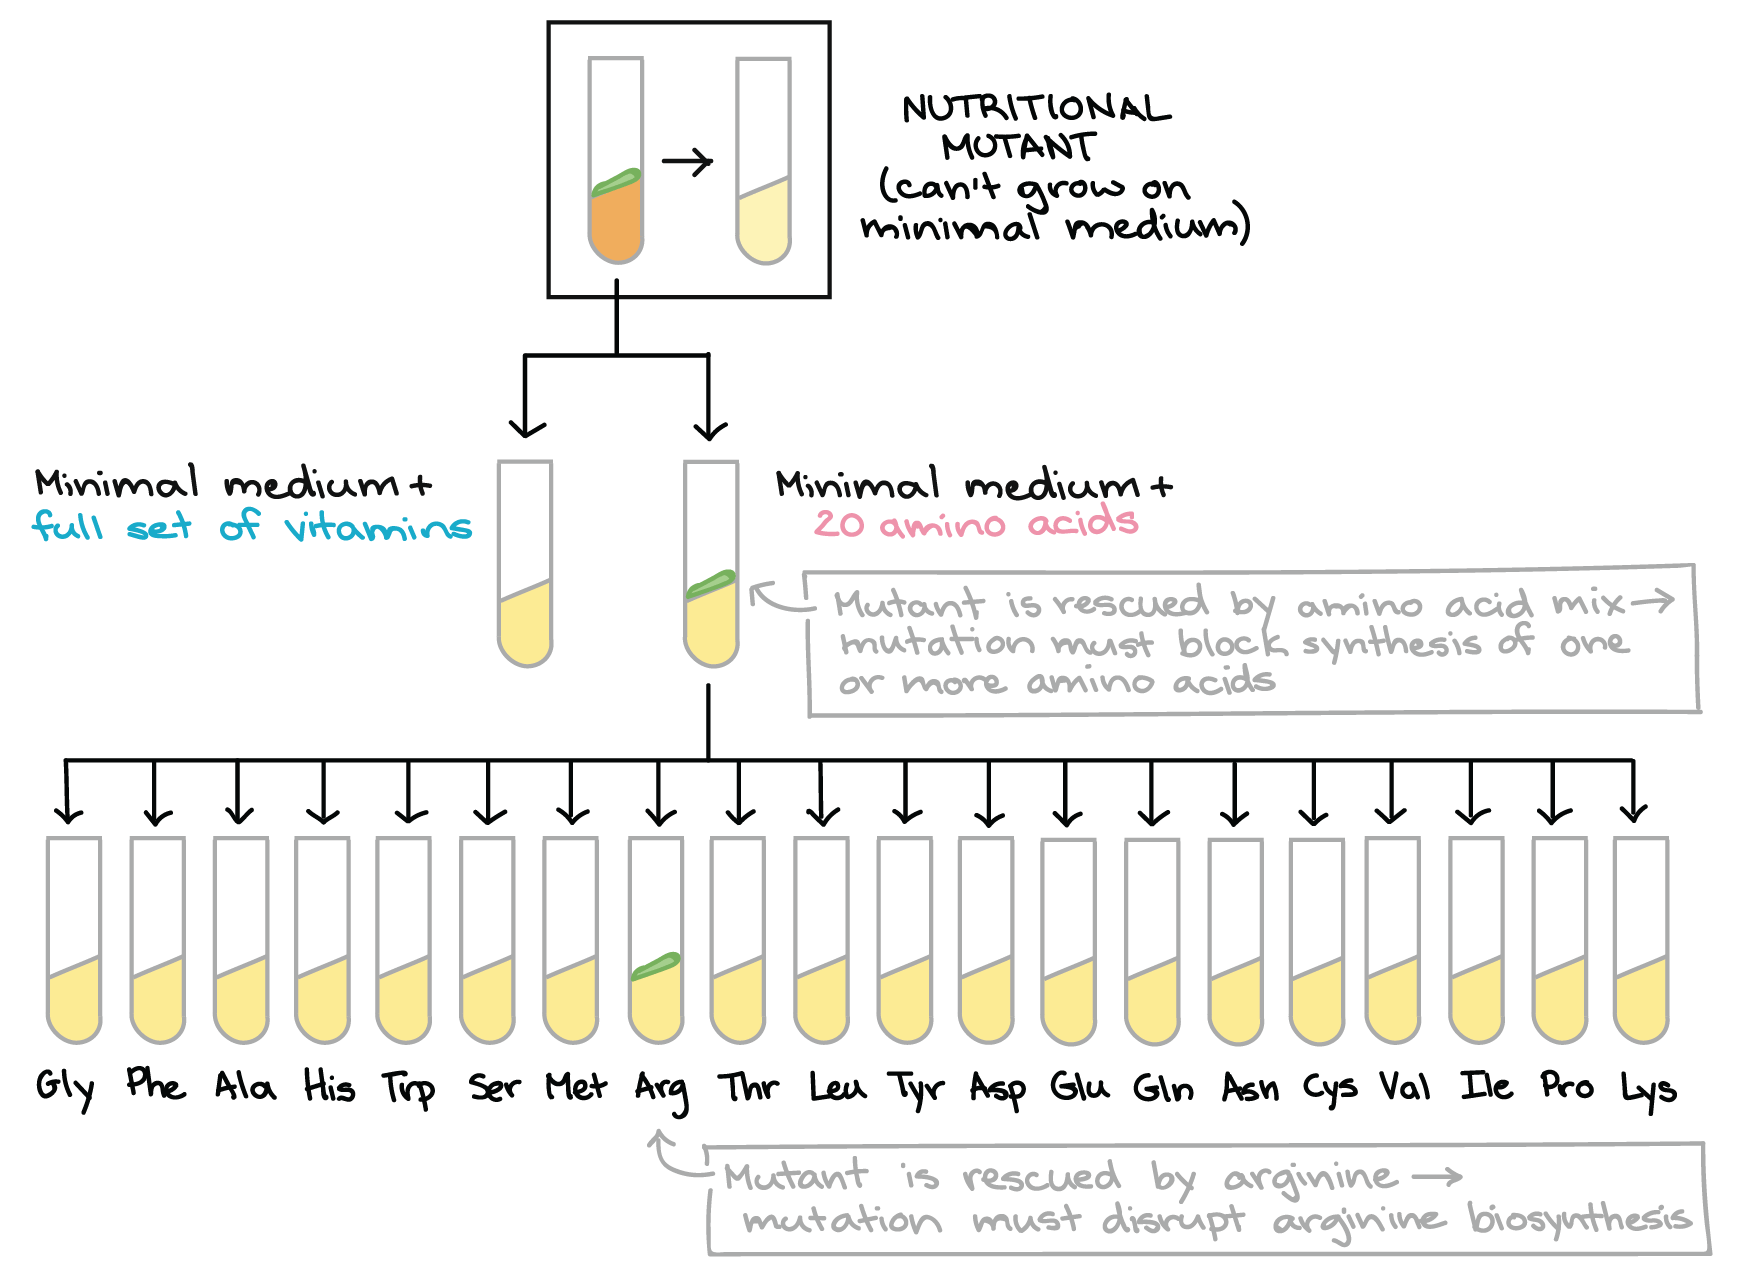 NUTRITIONAL
MUTANT
(can't grow on
minimal medium)
Minimal medium +
full set of vitamins
Minimal medium +
20 amino acids
Mutant is rescued by amino acid mix →
mutation must block synthesis of one
or more amino acids
Gly Phe Ala His Trp Ser Met Arg Thr Leu Tyr Asp Glu Gln Asn Cys Val Ile Pro Lys
Mutant is rescued by arginine →
mutation must disrupt arginine biosynthesis